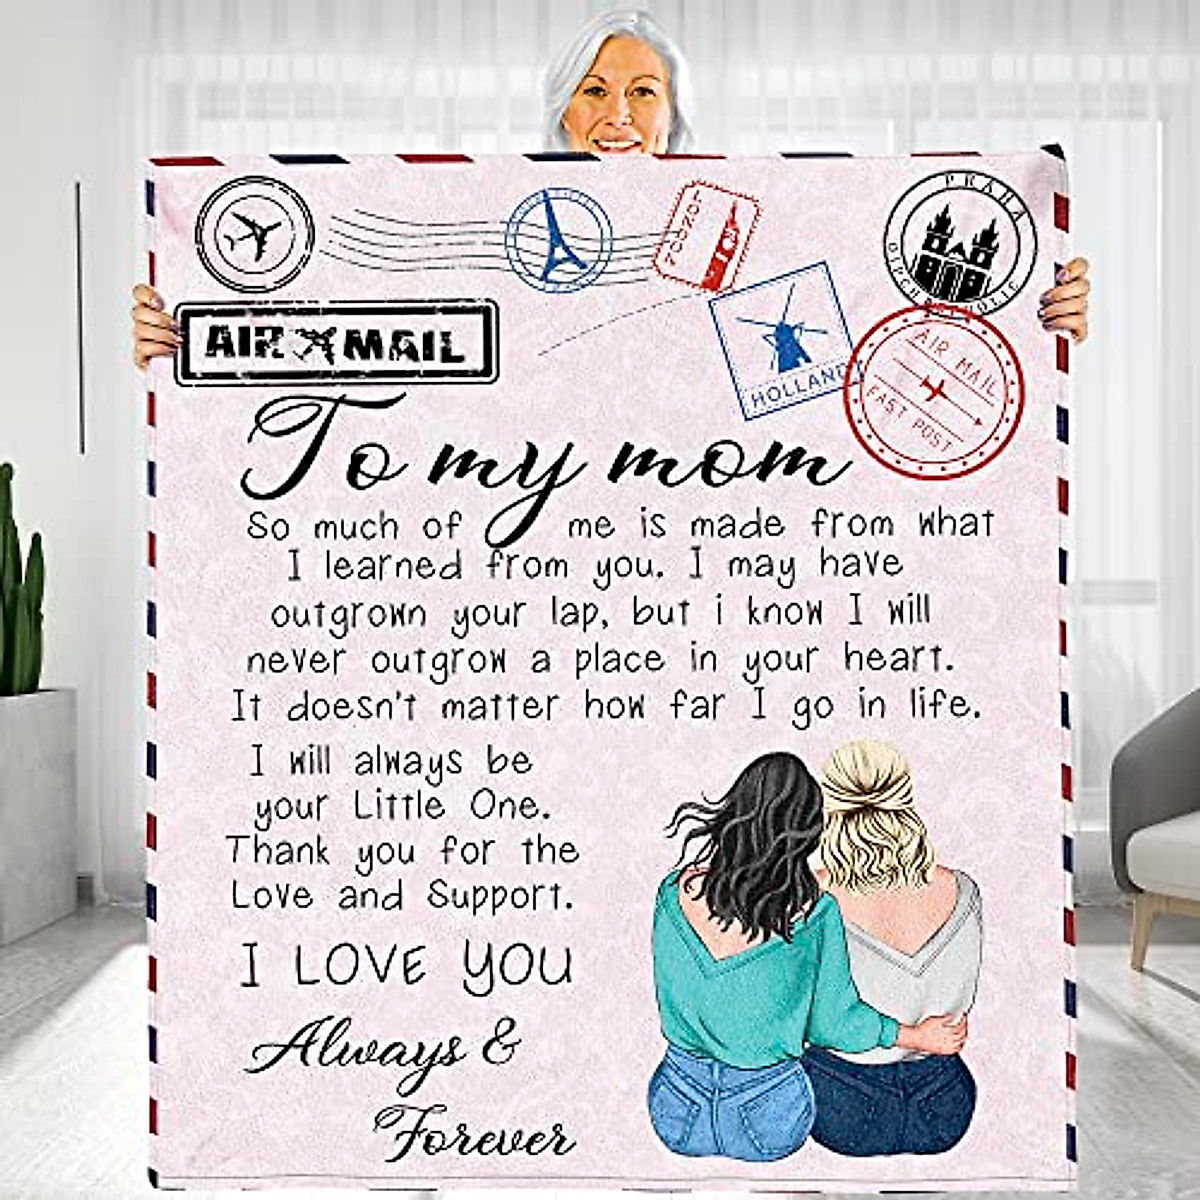 LONDON
PRAHA
AIR MAIL
HOLLAND
AIR MAIL
FAST POST
To my mom
So much of me is made from what
I learned from you. I may have
outgrown your lap, but i know I will
never outgrow a place in your heart.
It doesn't matter how far I go in life.
I will always be
your Little One.
Thank you for the
Love and Support.
I LOVE YOU
Always &
Forever